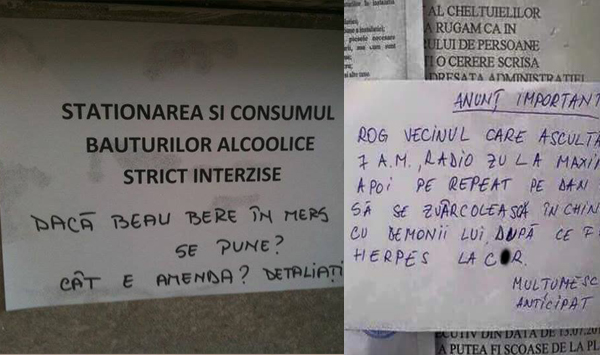 STATIONAREA SI CONSUMUL
BAUTURILOR ALCOOLICE
STRICT INTERZISE
DACĂ BEAU BERE ÎN MERS
SE PUNE?
CÂT E AMENDA? DETALIAȚI
AL CHELTUIELILOR
A RUGAM CA IN
RULUI DE PERSOANE
I O CERERE SCRISA
DRESATA ADMINISTRATIEI
ANUNȚ IMPORTANT
ROG VECINUL CARE ASCULTĂ
7 A.M., RADIO ZU LA MAXIM
APOI PE REPEAT PE DAN
SĂ SE ZVÂRCOLEASCĂ ÎN CHIN
CU DEMONII LUI, DUPĂ CE F
HERPES LA C R.
MULȚUMESC
ANTICIPAT
ECUTIV DIN DATA DE 13.07.20
A PUTEA FI SCOASE DE LA PL